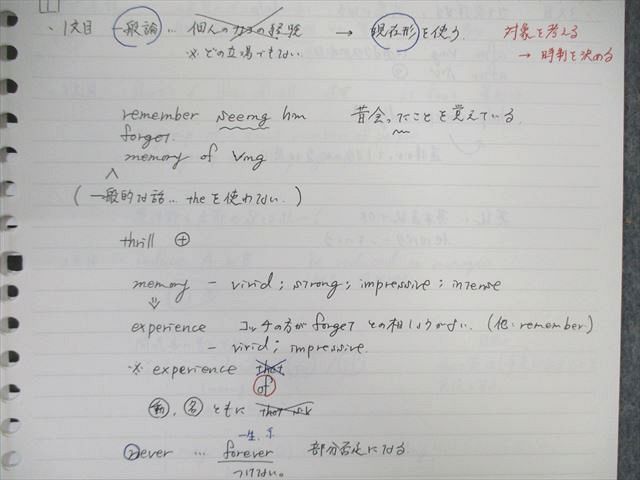 1
・1文目 一般論 … 個人の 経験 → 現在形を使う。 対象を考える
※ どの立場でもない → 時制を決める
remember seeing him 昔会ったことを覚えている。
forget.
memory of Ving
(一般的な話… theを使わない。)
thrill ⊕
memory - vivid ; strong ; impressive ; intense
⇓
experience コッチの方がforgetとの相しょうがよい。(他: remember)
- vivid ; impressive.
※ experience that
of
動, 名 ともに that SV
一生、永
never … forever 部分否定になる
つけない。